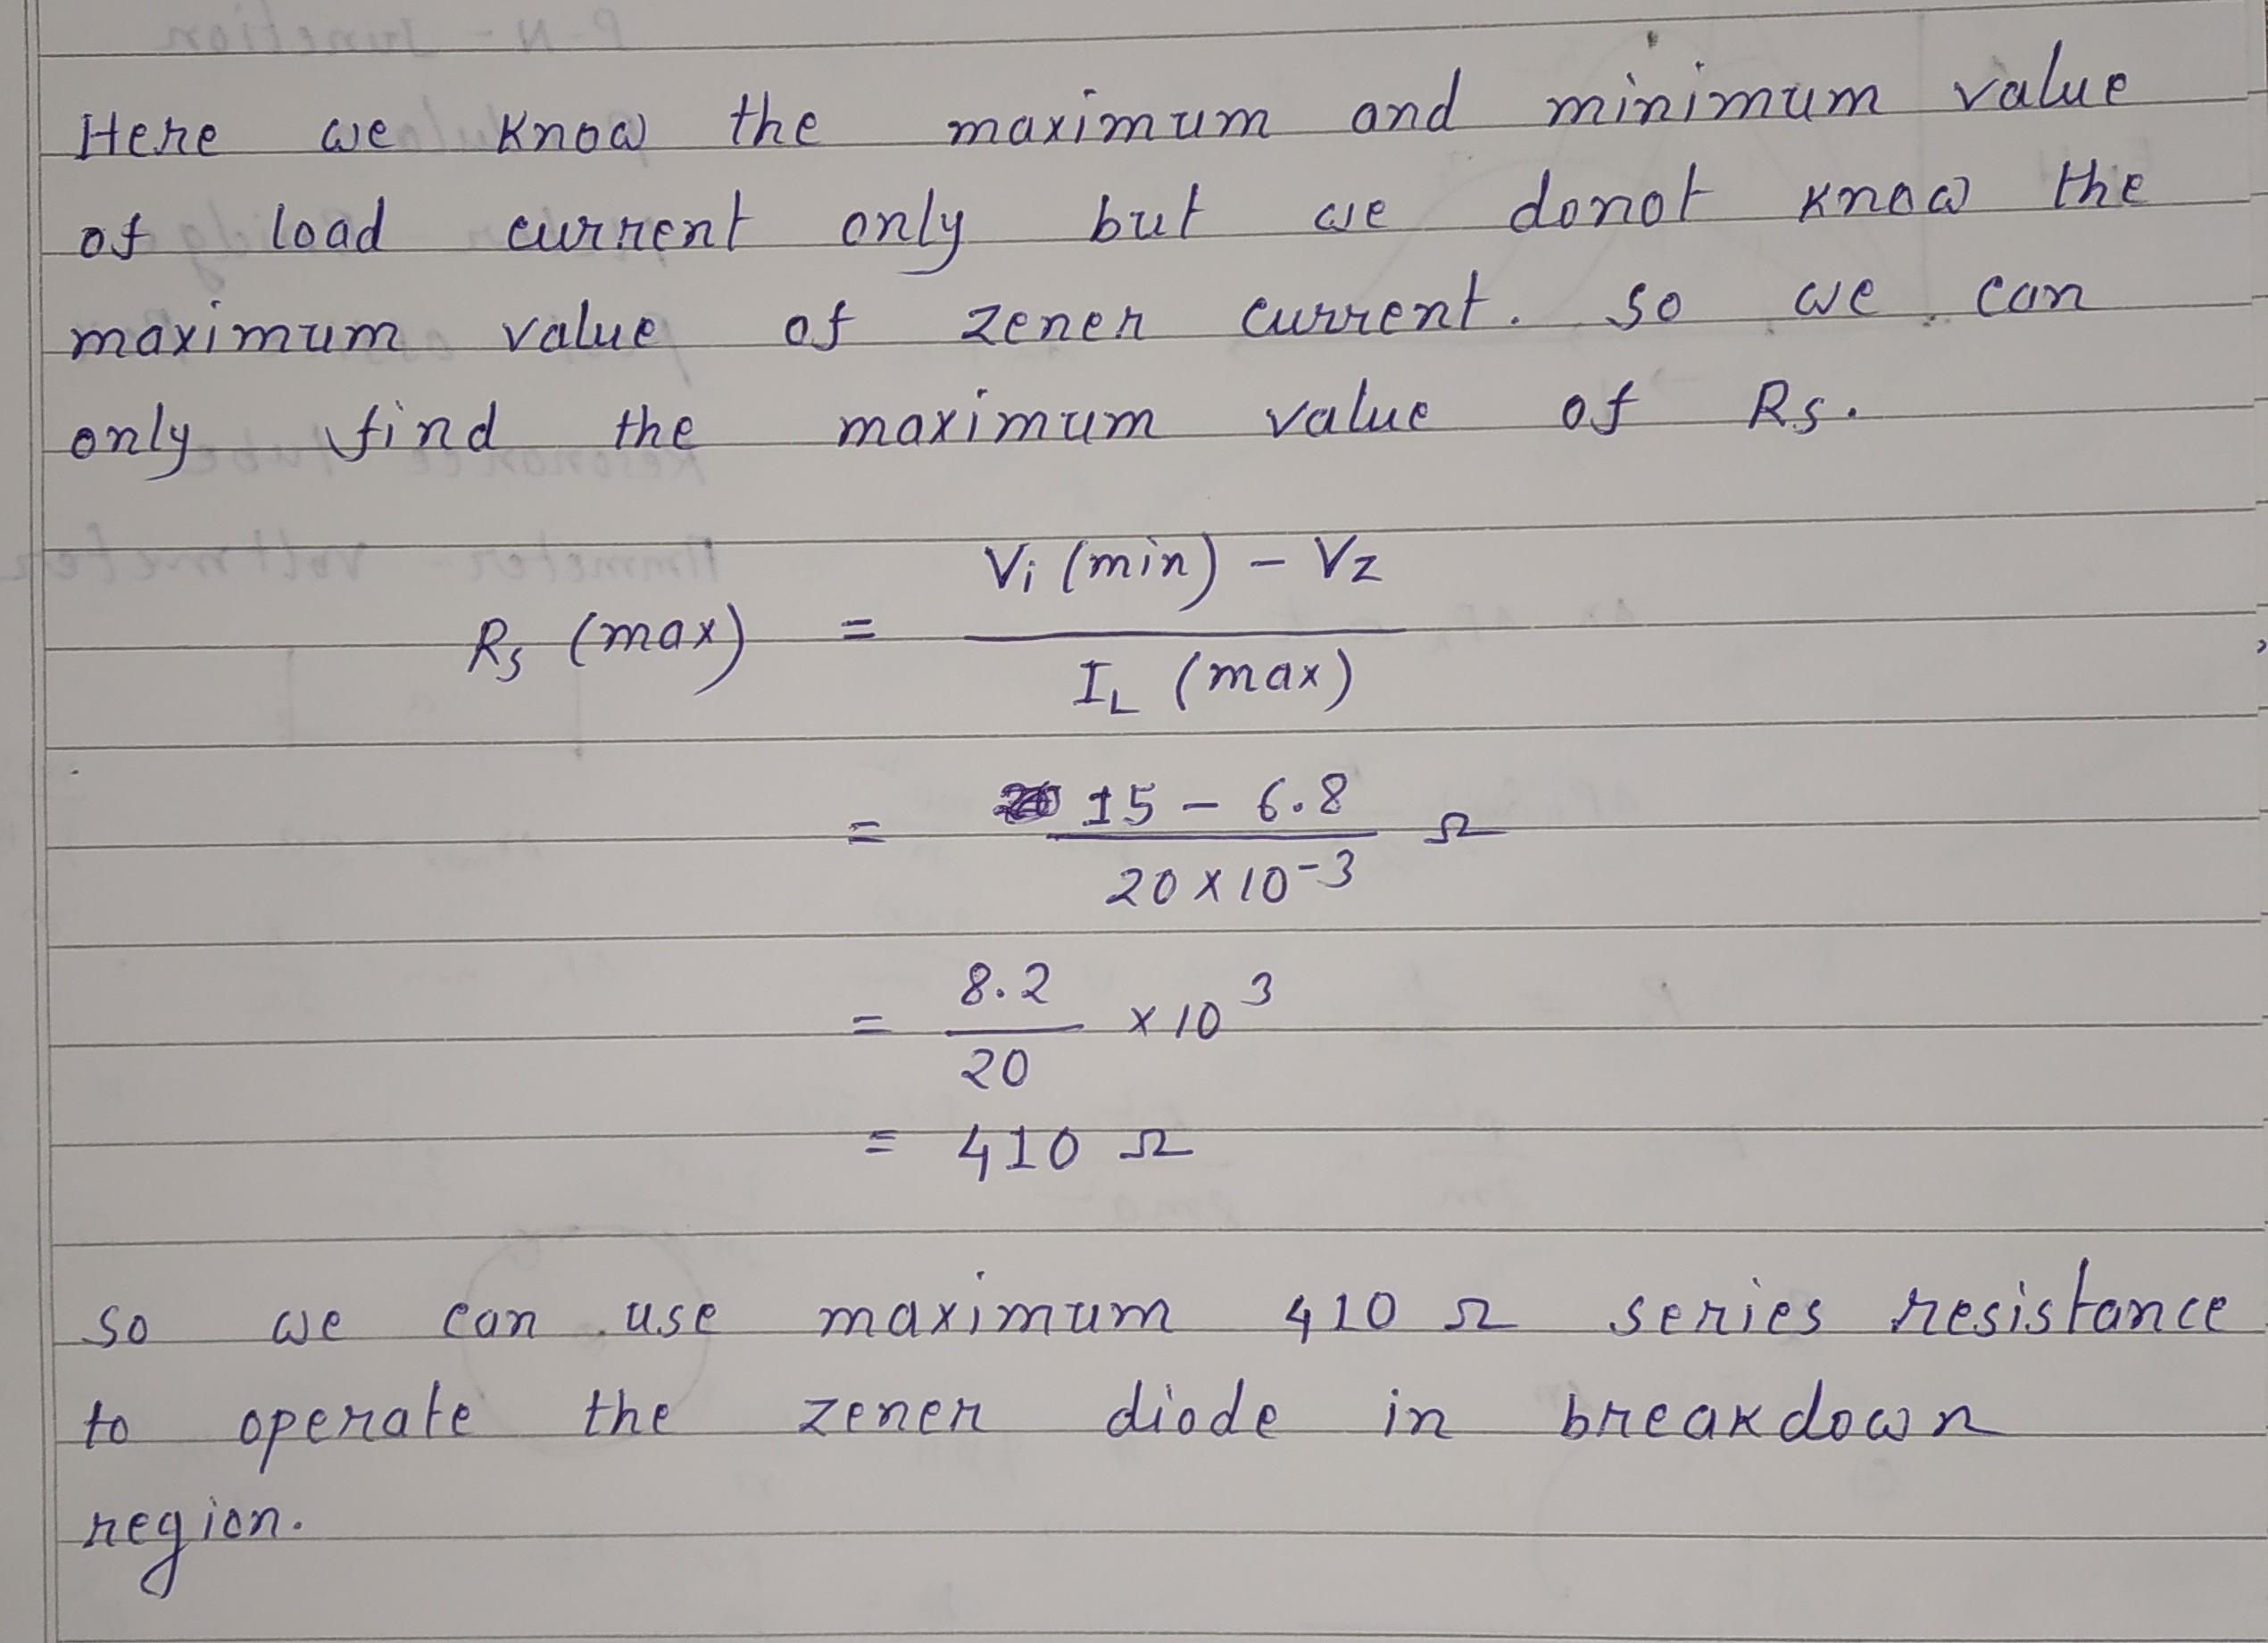 Here we know the maximum and minimum value
of load current only but we donot know the
maximum value of zener current. so we can
only find the maximum value of Rs.
Rs (max) = Vi (min) - Vz / IL (max)
= 15 - 6.8 / 20 x 10^-3 Ω
= 8.2 / 20 x 10^3
= 410 Ω
so we can use maximum 410 Ω series resistance
to operate the zener diode in breakdown
region.